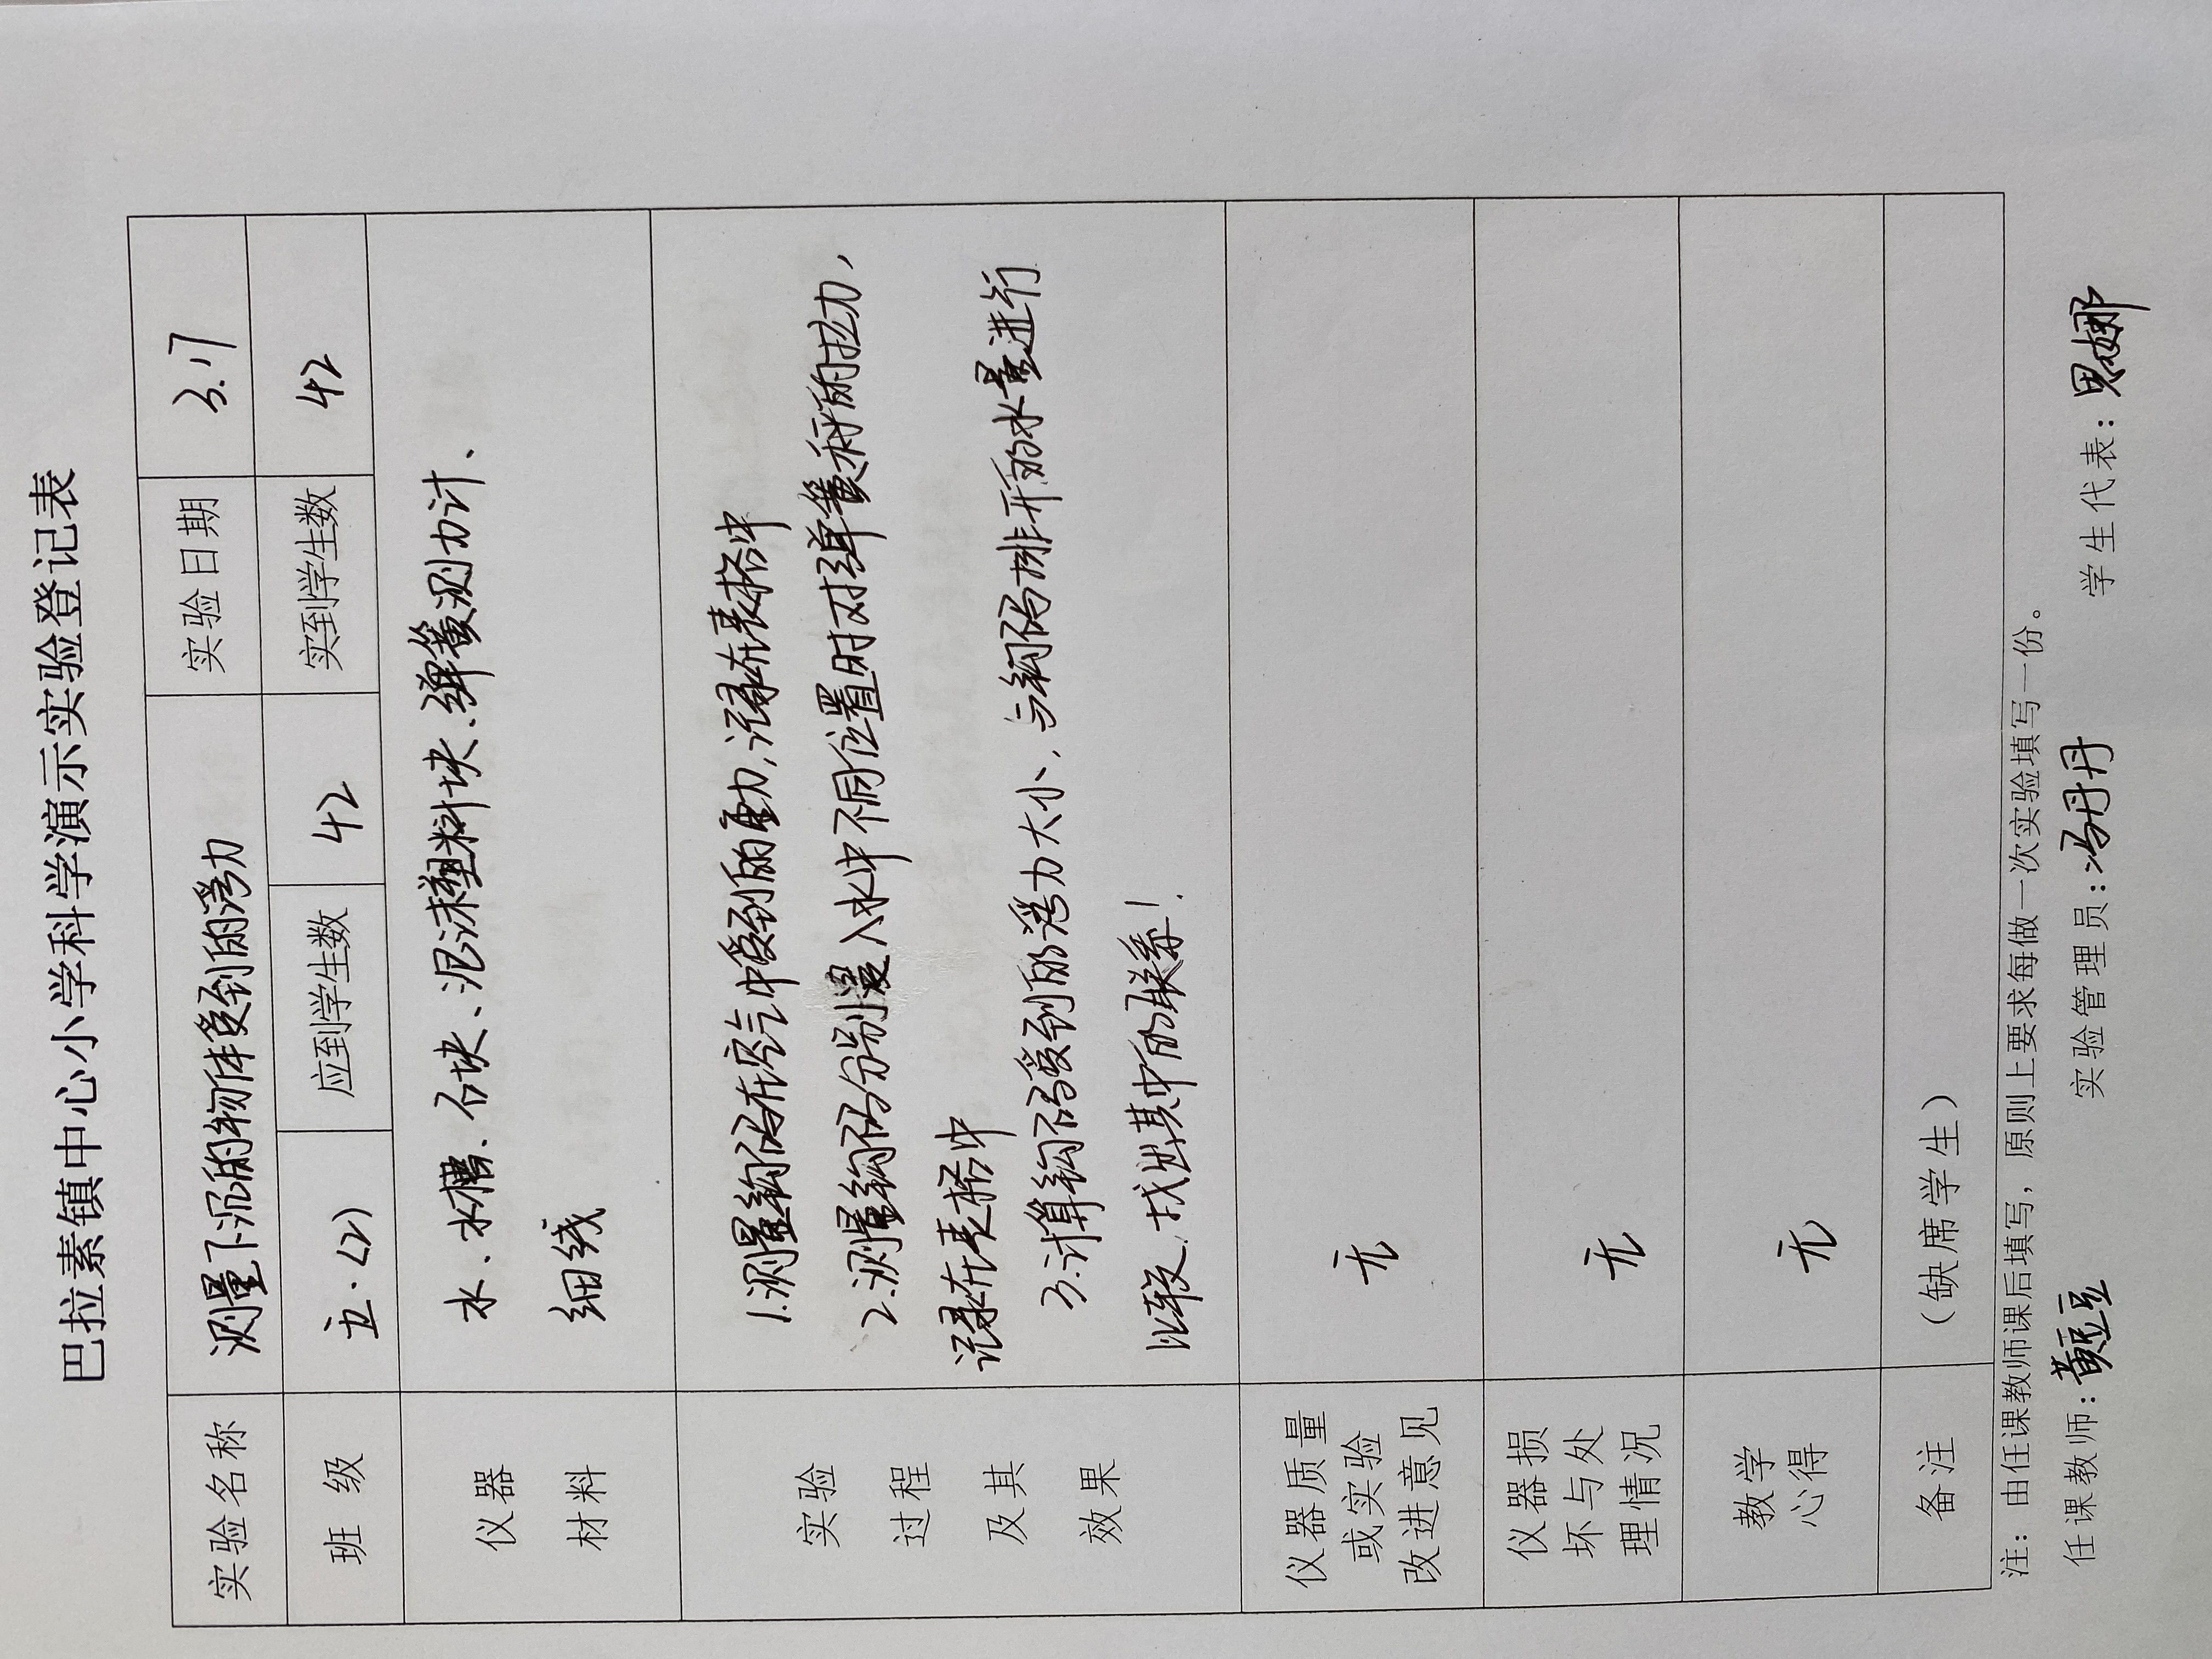 巴拉素镇中心小学科学演示实验登记表
实验名称 测量下沉的物体受到的浮力 实验日期 3.17
班 级 五.(2) 应到学生数 42 实到学生数 42
仪器 水、水槽、石块、泡沫塑料块、弹簧测力计、
材料 细线
实验 1.测量钩码在空气中受到的重力,记录在表格中
过程 2.测量钩码分别浸入水中不同位置时对弹簧秤的拉力,
及其 记录在表格中
3.计算钩码受到的浮力大小,与钩码排开的水量进行
效果 比较,找出其中的联系!
仪器质量
或实验 无
改进意见
仪器损
坏与处 无
理情况
教学
心得 无
备注 (缺席学生)
注:由任课教师课后填写,原则上要求每做一次实验填写一份。
任课教师:黄豆豆 实验管理员:冯丹丹 学生代表:思娜